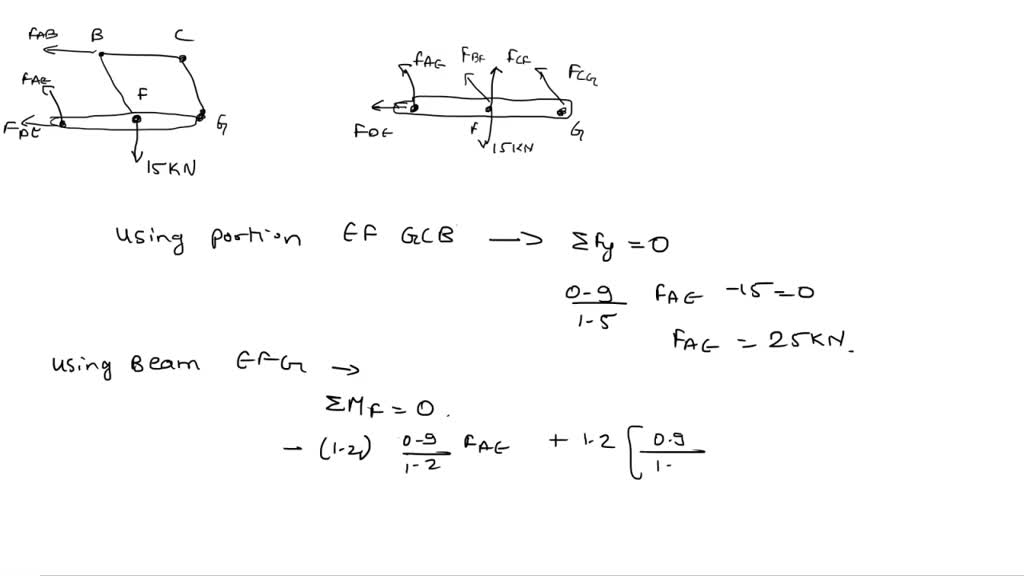 FAB B C
FAE F
FDE G
15KN
FAE FBF FCF FCG
FDE F G
15KN
Using portion EF GCB → ΣFy = 0
0-9/1-5 FAE -15=0
FAE = 25KN.
Using Beam EFG →
ΣMF = 0.
- (1-2) 0-9/1-2 FAE + 1-2 [ 0-9/1-